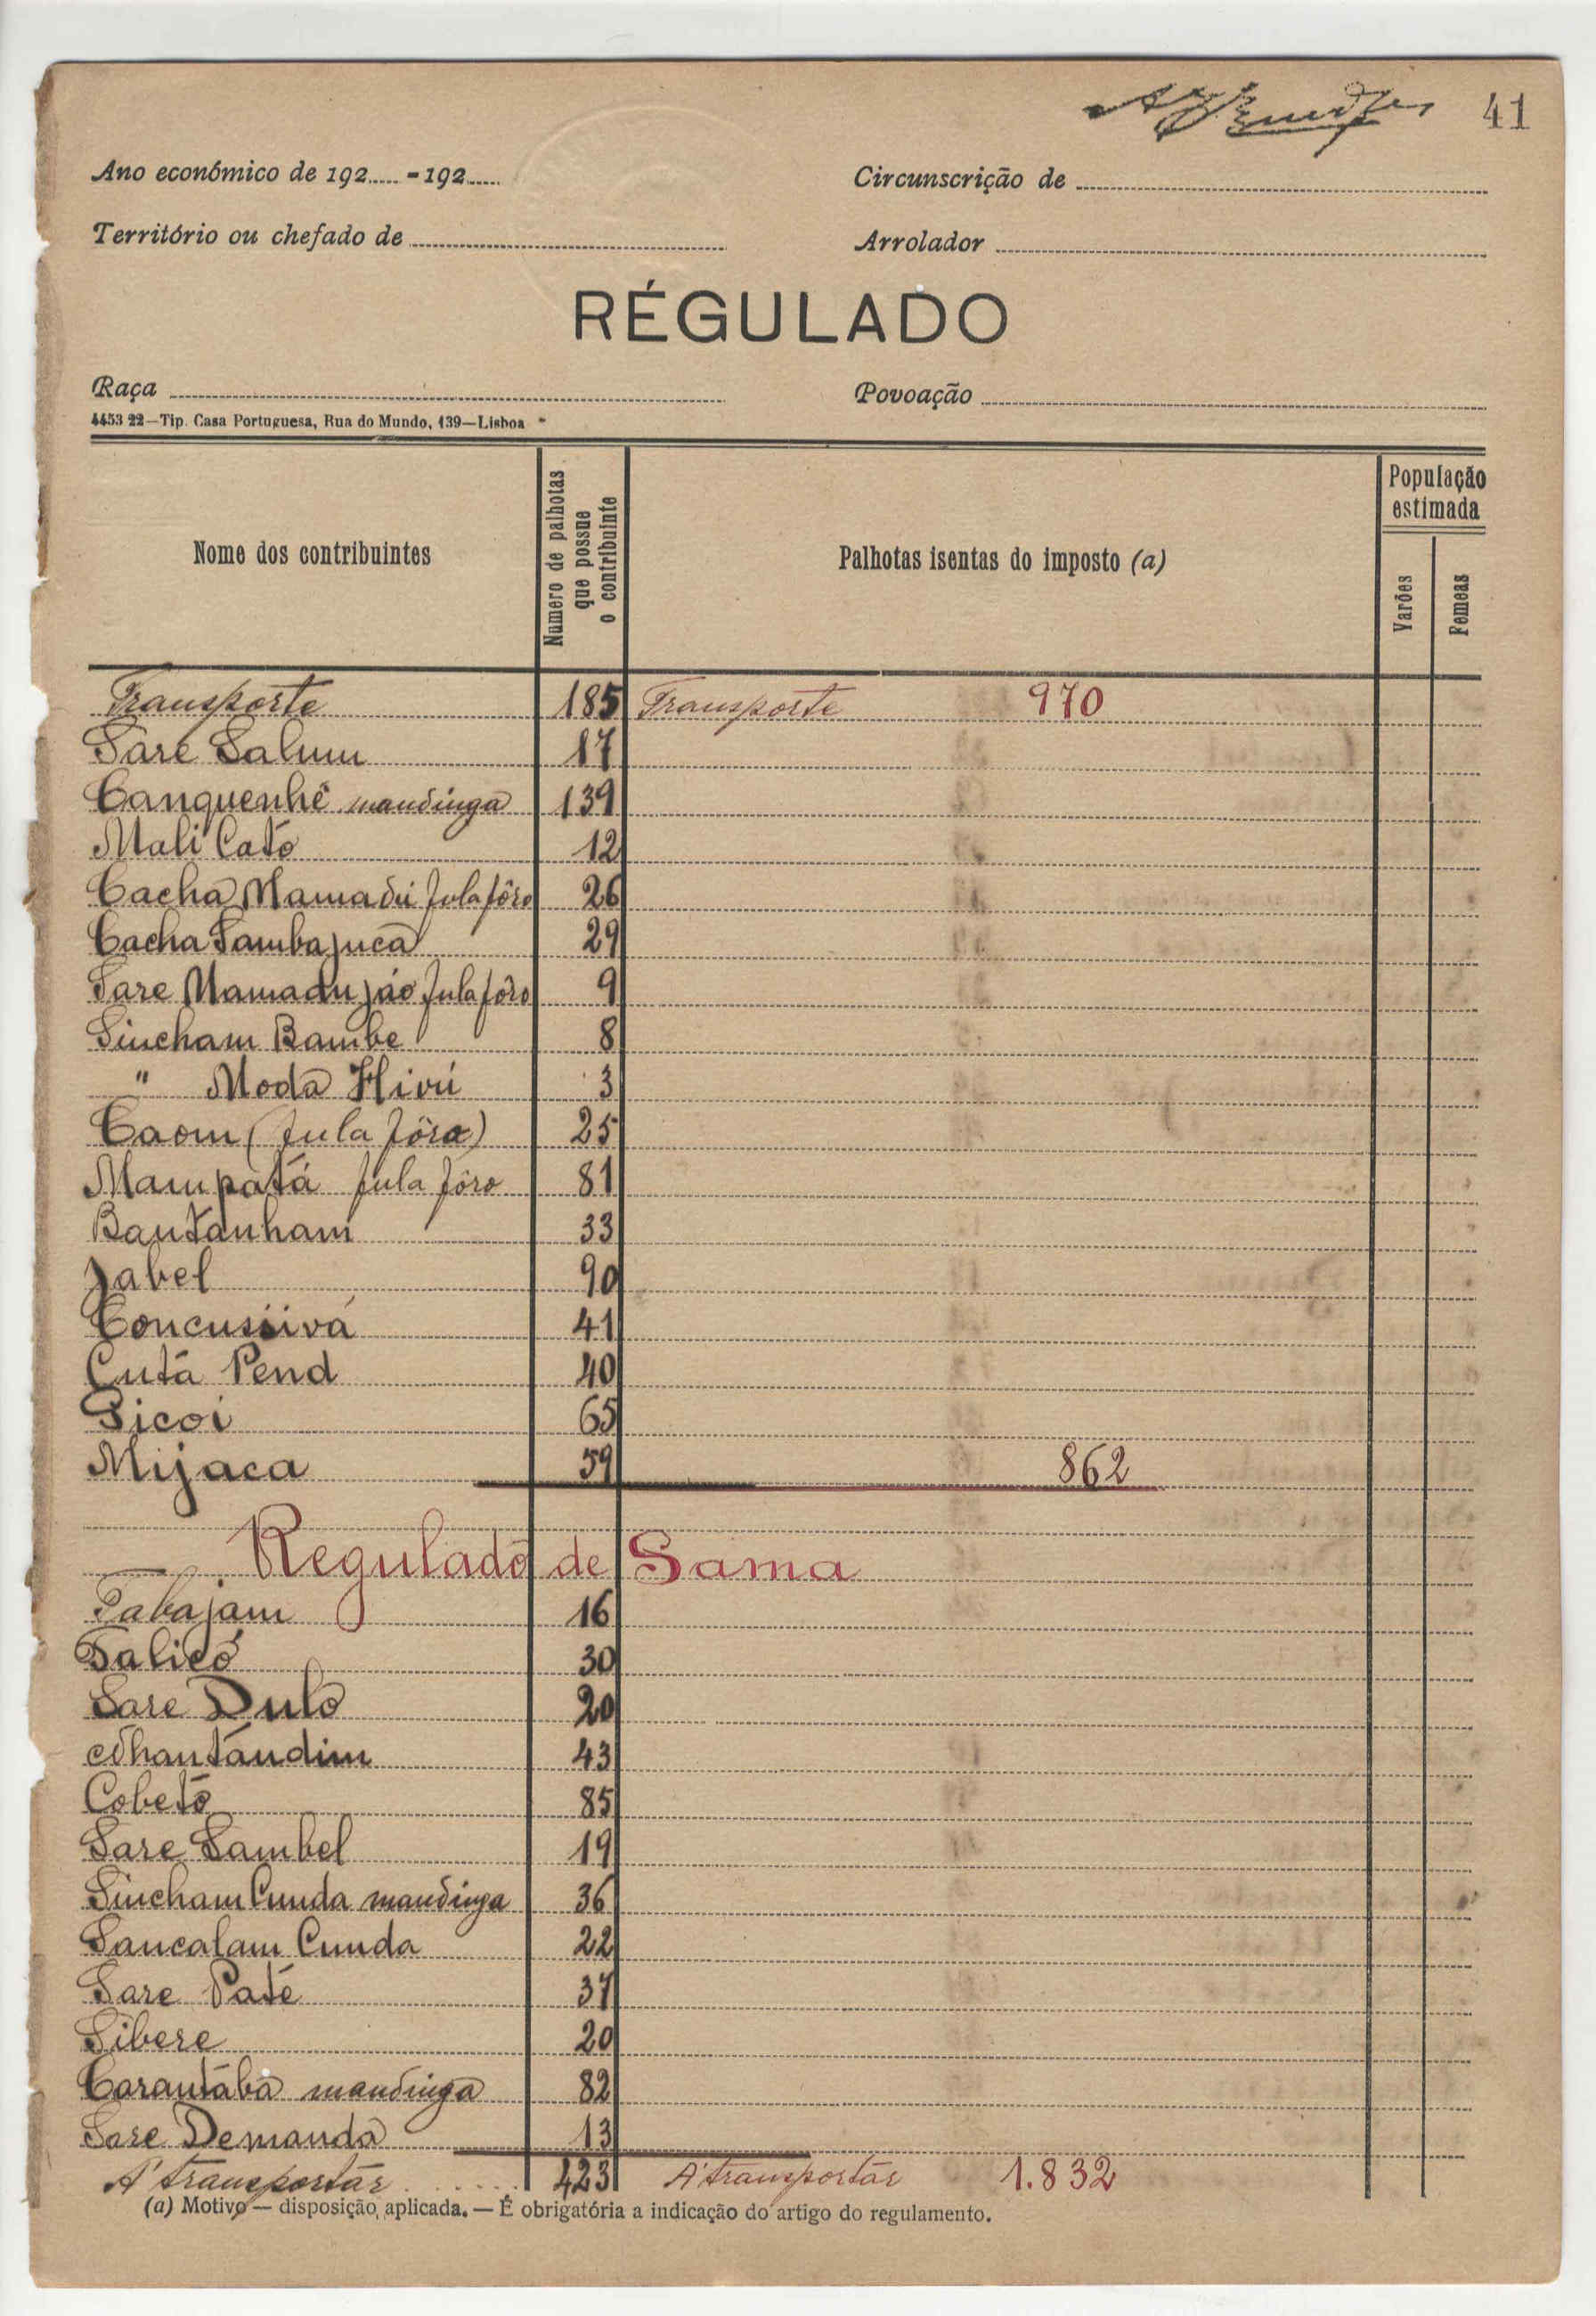 41
Ano económico de 192..... - 192.....
Circunscrição de
Território ou chefado de
Arrolador
RÉGULADO
Raça
Povoação
4453 22—Tip. Casa Portuguesa, Rua do Mundo, 139—Lisboa
Nome dos contribuintes
Numero de palhotas que possue o contribuinte
Palhotas isentas do imposto (a)
População estimada
Varões
Femeas
Transporte 185 Transporte 970
Sare Salum 17
Canquenhê mandinga 139
Mali Cató 12
Cacha Mamadú fula fôro 26
Cacha Sambajuca 29
Sare Mamadu jáo fula fôro 9
Sincham Bambe 8
" Moda Hirú 3
Caom (fula fôro) 25
Mampatá fula fôro 81
Bantanham 33
Jabel 90
Concusiivá 41
Cutá Pend 40
Sicoi 65
Mijaca 59 862
Regulado de Sama
Tabajam 16
Talicó 30
Sare Dulo 20
Nhantándim 43
Cobetó 85
Sare Sambel 19
Sincham Cunda mandinga 36
Sancalam Cunda 22
Sare Paté 37
Sibere 20
Carantábá mandinga 82
Sare Demanda 13
A' transportar ...... 423 A' transportar 1.832
(a) Motivo — disposição aplicada. — É obrigatória a indicação do artigo do regulamento.